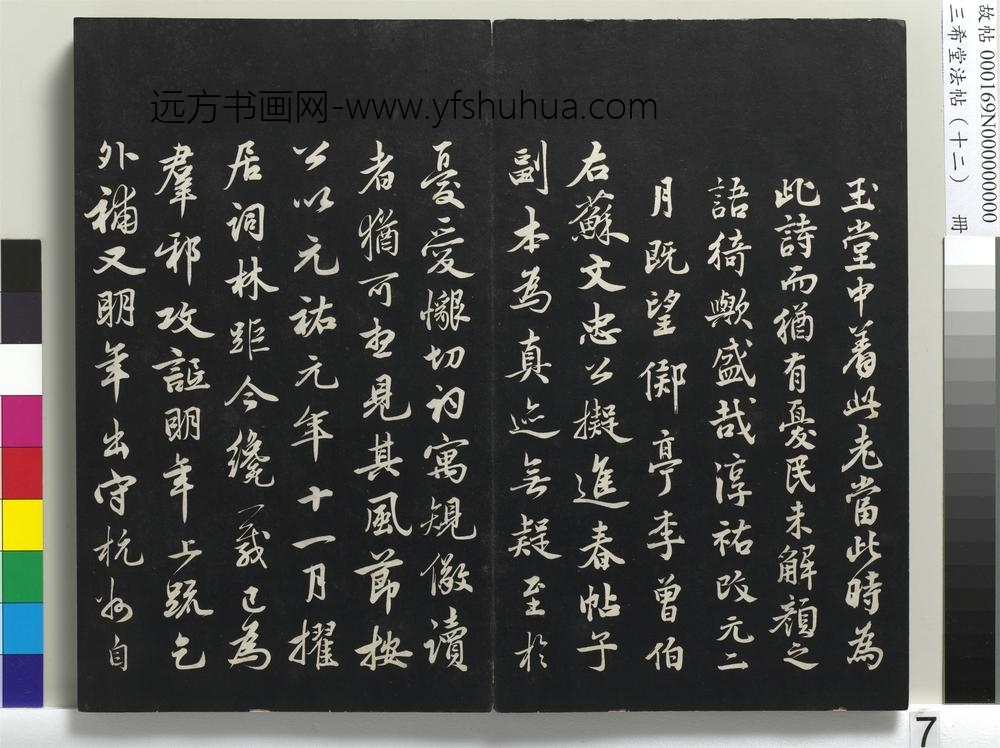 玉堂中着此老當此時為
此詩而猶有憂民未解顏之
語猗歟盛哉淳祐改元二
月既望鄖亭李曾伯
右蘇文忠公擬進春帖子
副本為真迹無疑至於
憂愛懇切初寓規儆讀
者猶可想見其風節按
公以元祐元年十一月擢
居詞林距今纔一載已為
羣邪攻詆明年上疏乞
外補又明年出守杭州自
远方书画网-www.yfshuhua.com
故帖 000169N000000000
三希堂法帖(十二) 冊
7